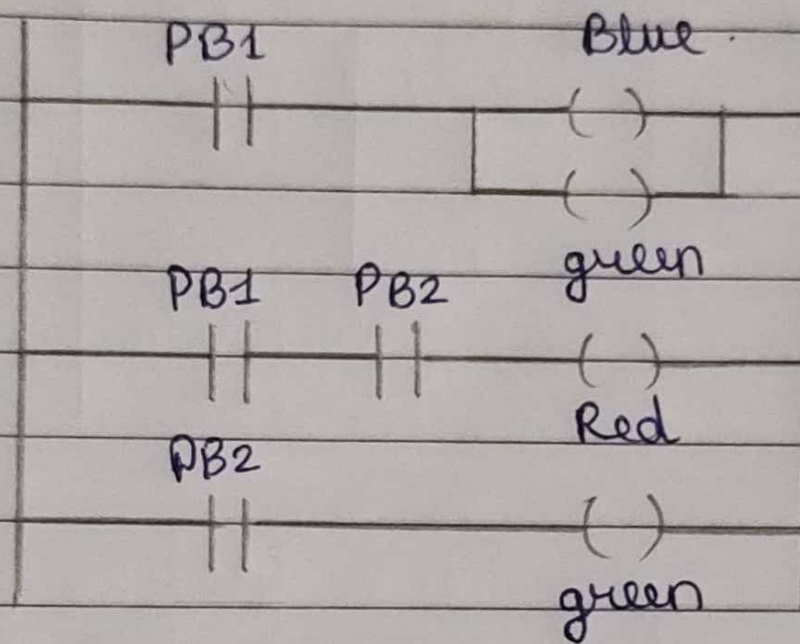 PB1 Blue
green
PB1 PB2
Red
PB2
green